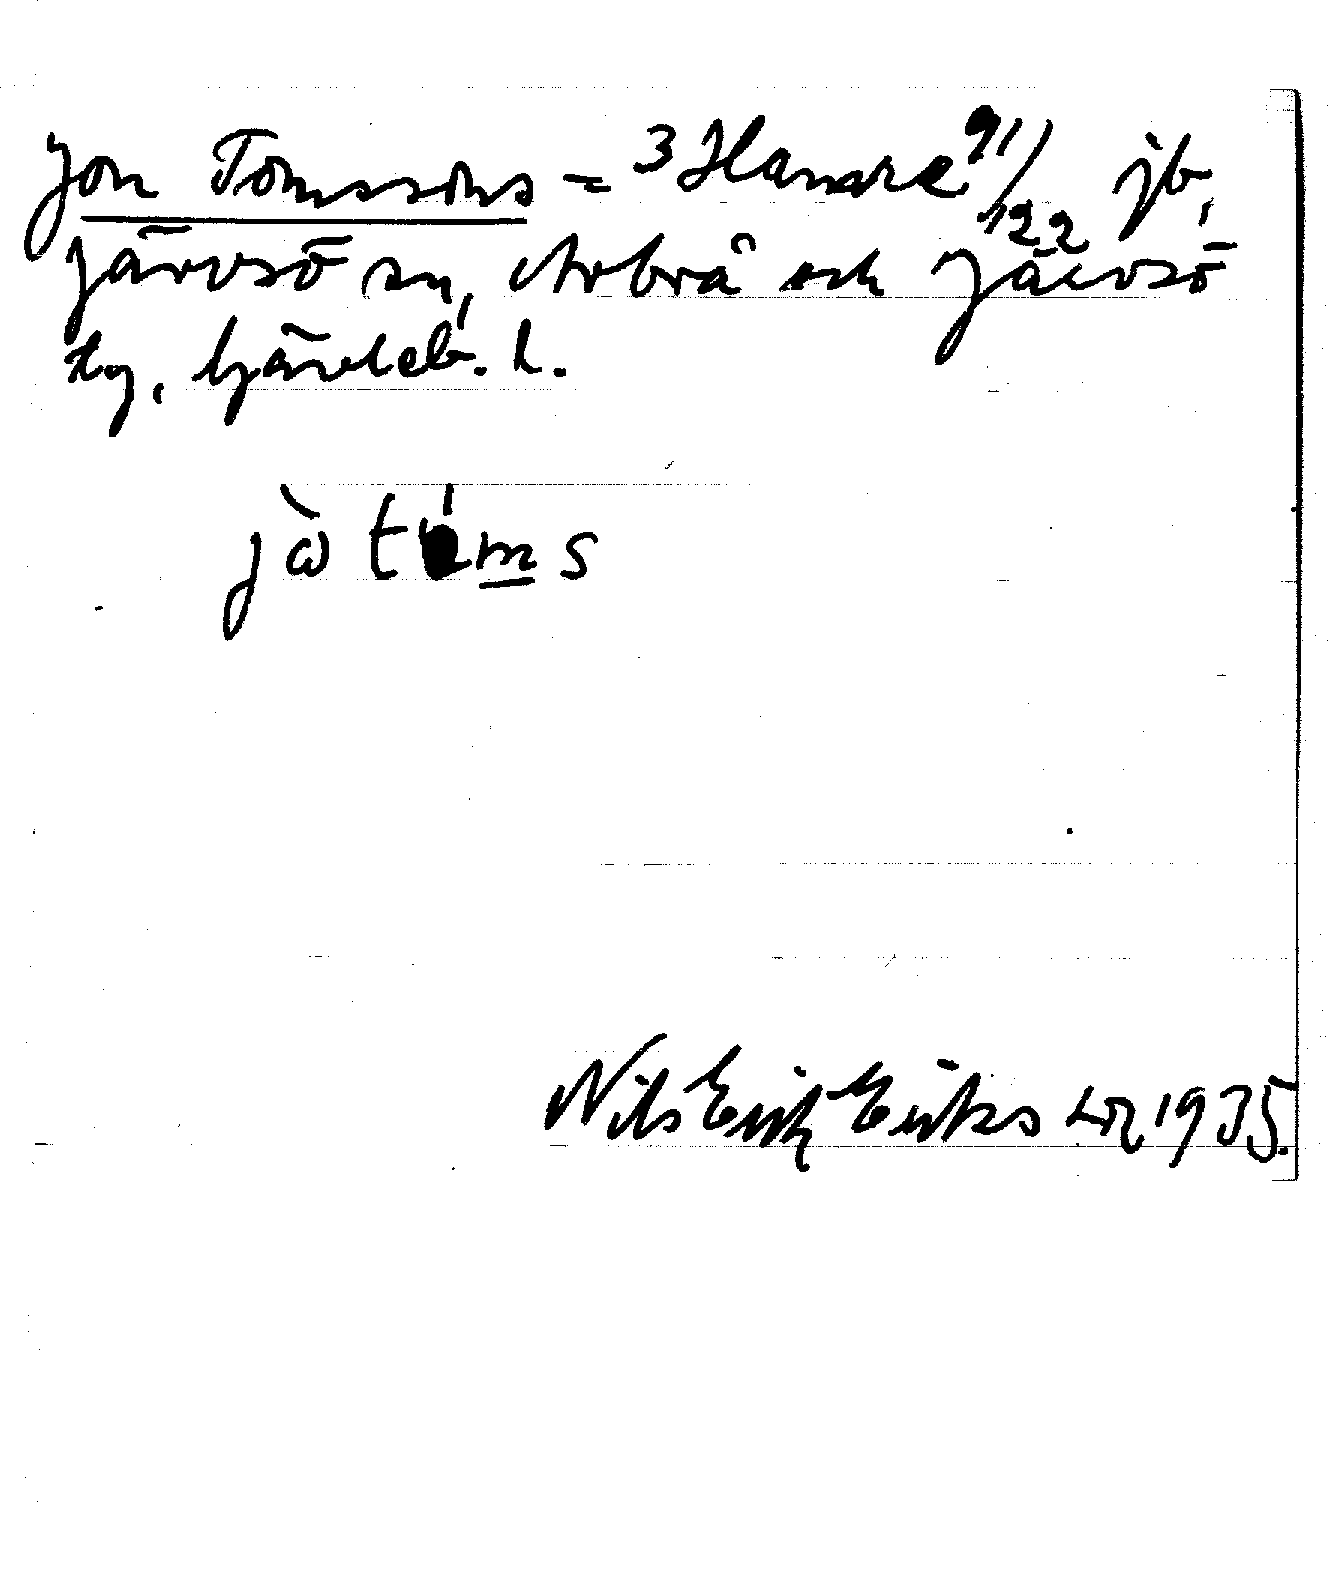 Jon Tomssons = 3 Hamre 91/122 jb,
Järvsö sn, Arbrå och Järvsö
tg, Gävleb. l.
jò tms
Nils Erik Eriksson 1935.